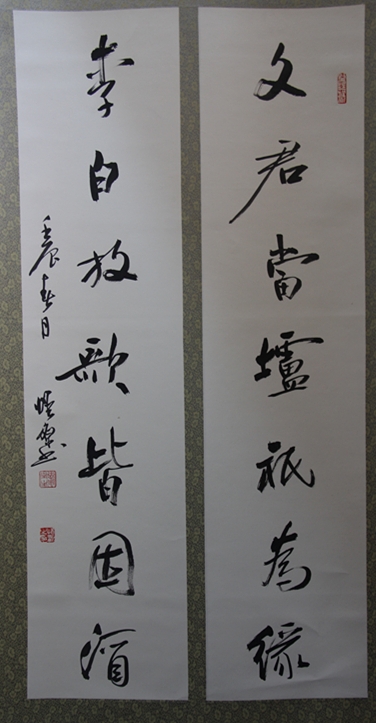 文君當壚祇為緣
李白放歌皆因酒
壬辰春月